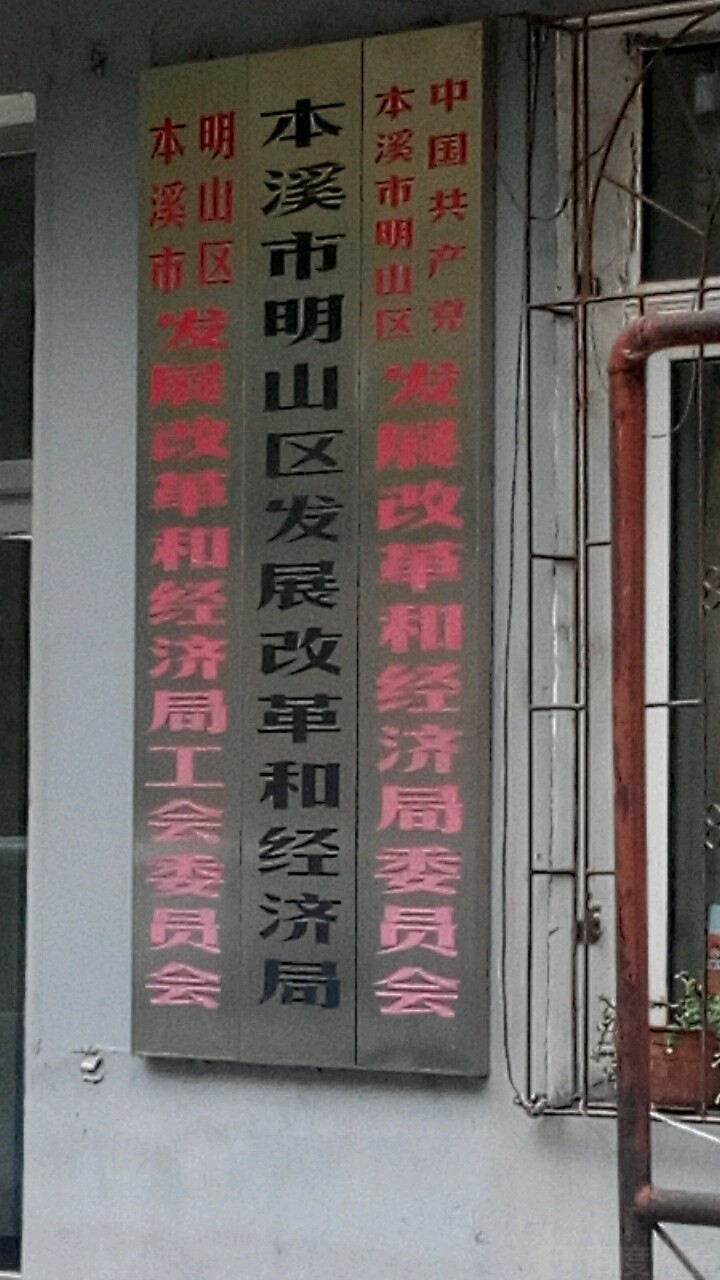 中国共产党
本溪市明山区
发展改革和经济局委员会
本溪市明山区发展改革和经济局
明山区
本溪市
发展改革和经济局工会委员会